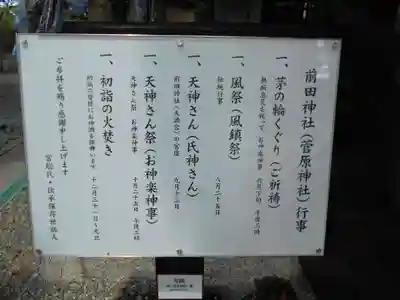 前田神社（菅原神社）行事
一、茅の輪くぐり（ご祈祷）
無病息災を祝って お神楽神事 六月下旬 午後三時
一、風祭（風鎮祭）
伝統行事 八月二十五日
一、天神さん（氏神さん）
前田神社（天満宮）の宮座 九月十二日
一、天神さん祭（お神楽神事）
天神さん祭 お神楽神事 十月二十五日 午後三時
一、初詣の火焚き
初詣の皆様にお神酒を振舞います 十二月三十一日〜元旦
ご参拝を賜り感謝申し上げます
宮総代・伝承保存世話人